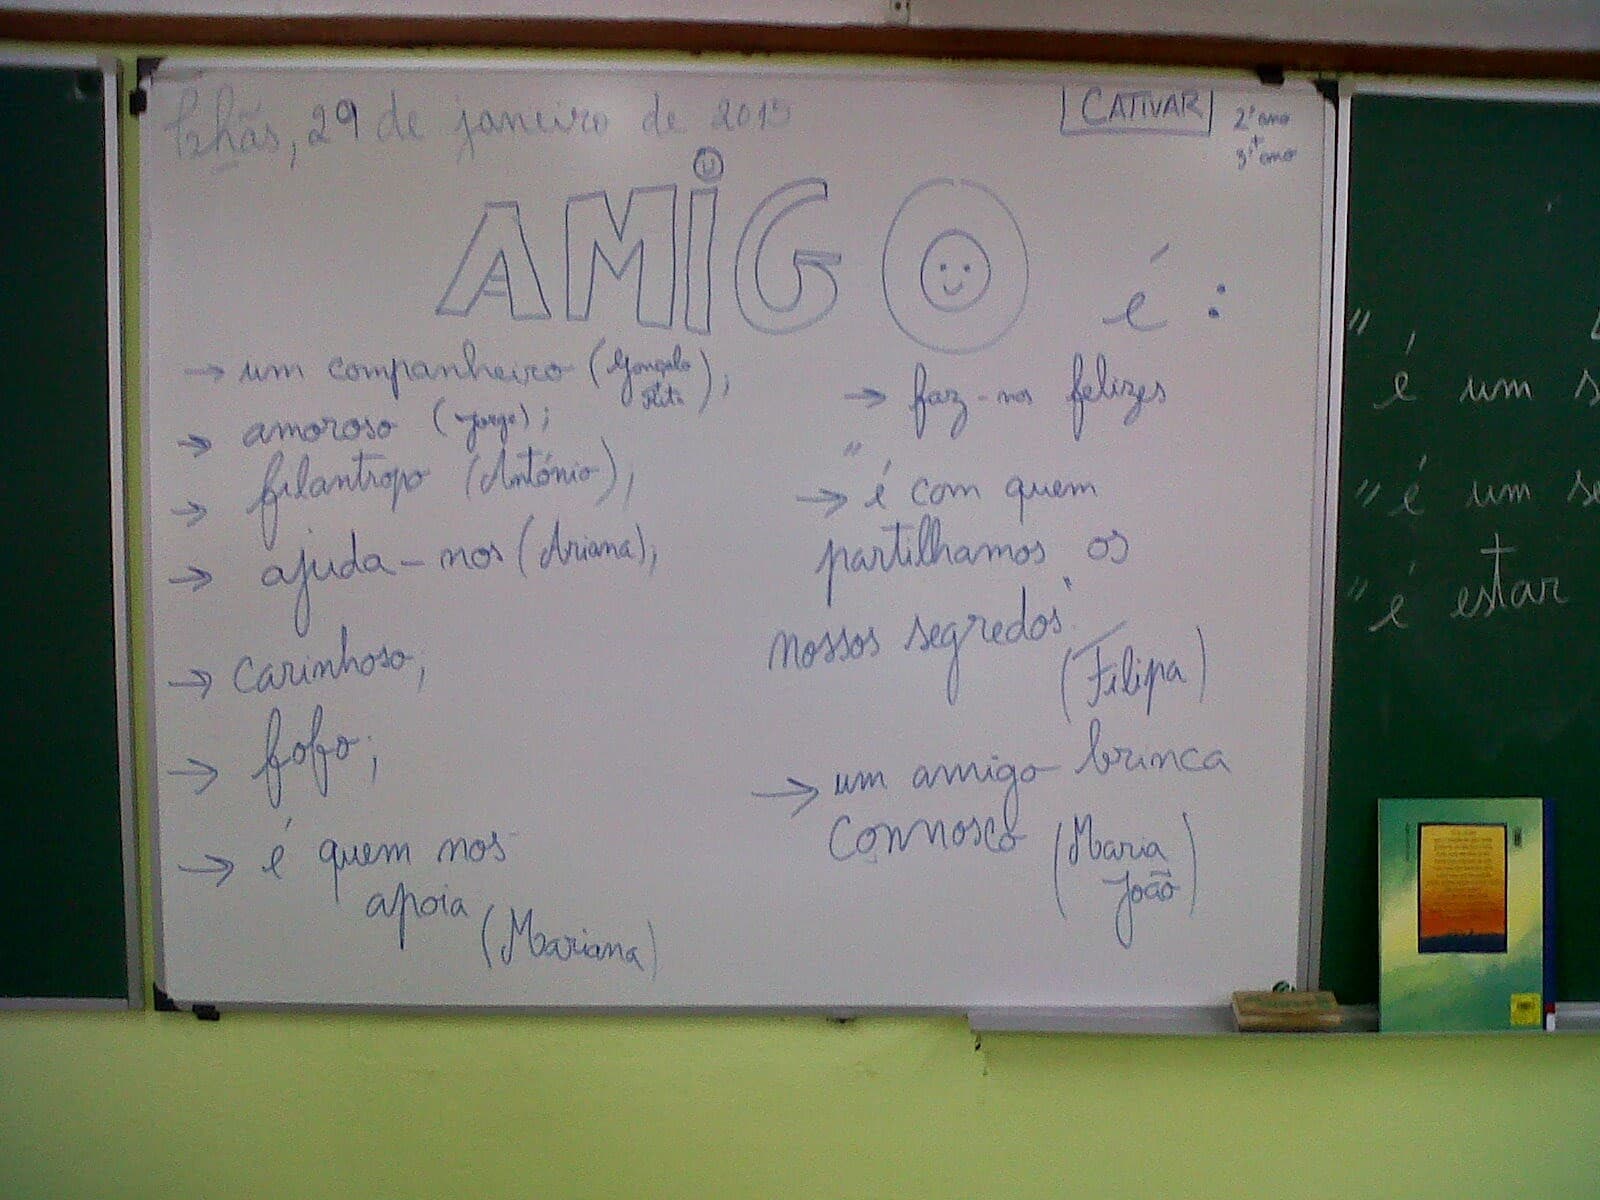 Ilhãs, 29 de janeiro de 2015
CATIVAR
2º ano
+
3º ano
AMIGO é :
→ um companheiro (Gonçalo
Rita);
→ amoroso (Jorge);
→ filantropo (António);
→ ajuda-nos (Ariana);
→ carinhoso;
→ fofo;
→ é quem nos
apoia
(Mariana)
→ faz-nos felizes
"
→ é com quem
partilhamos os
nossos segredos"
(Filipa)
→ um amigo brinca
connosco (Maria
João)
" é um s
" é um se
" é estar